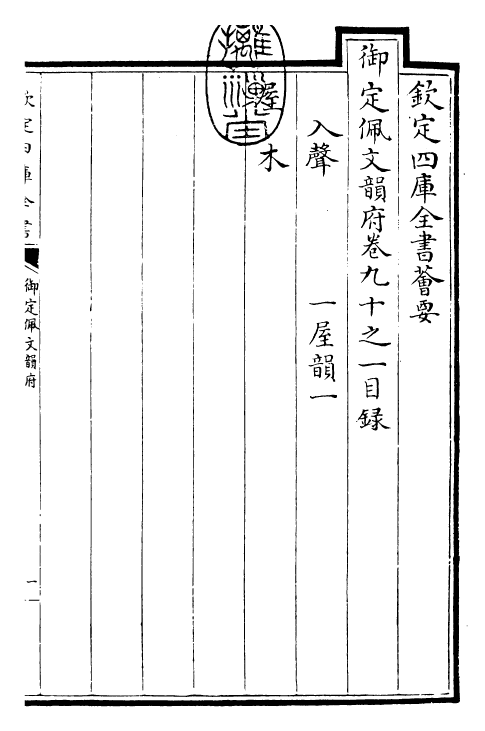 欽定四庫全書薈要
御定佩文韻府卷九十之一目録
入聲　一屋韻一
屋
木
欽定四庫全書
御定佩文韻府
一